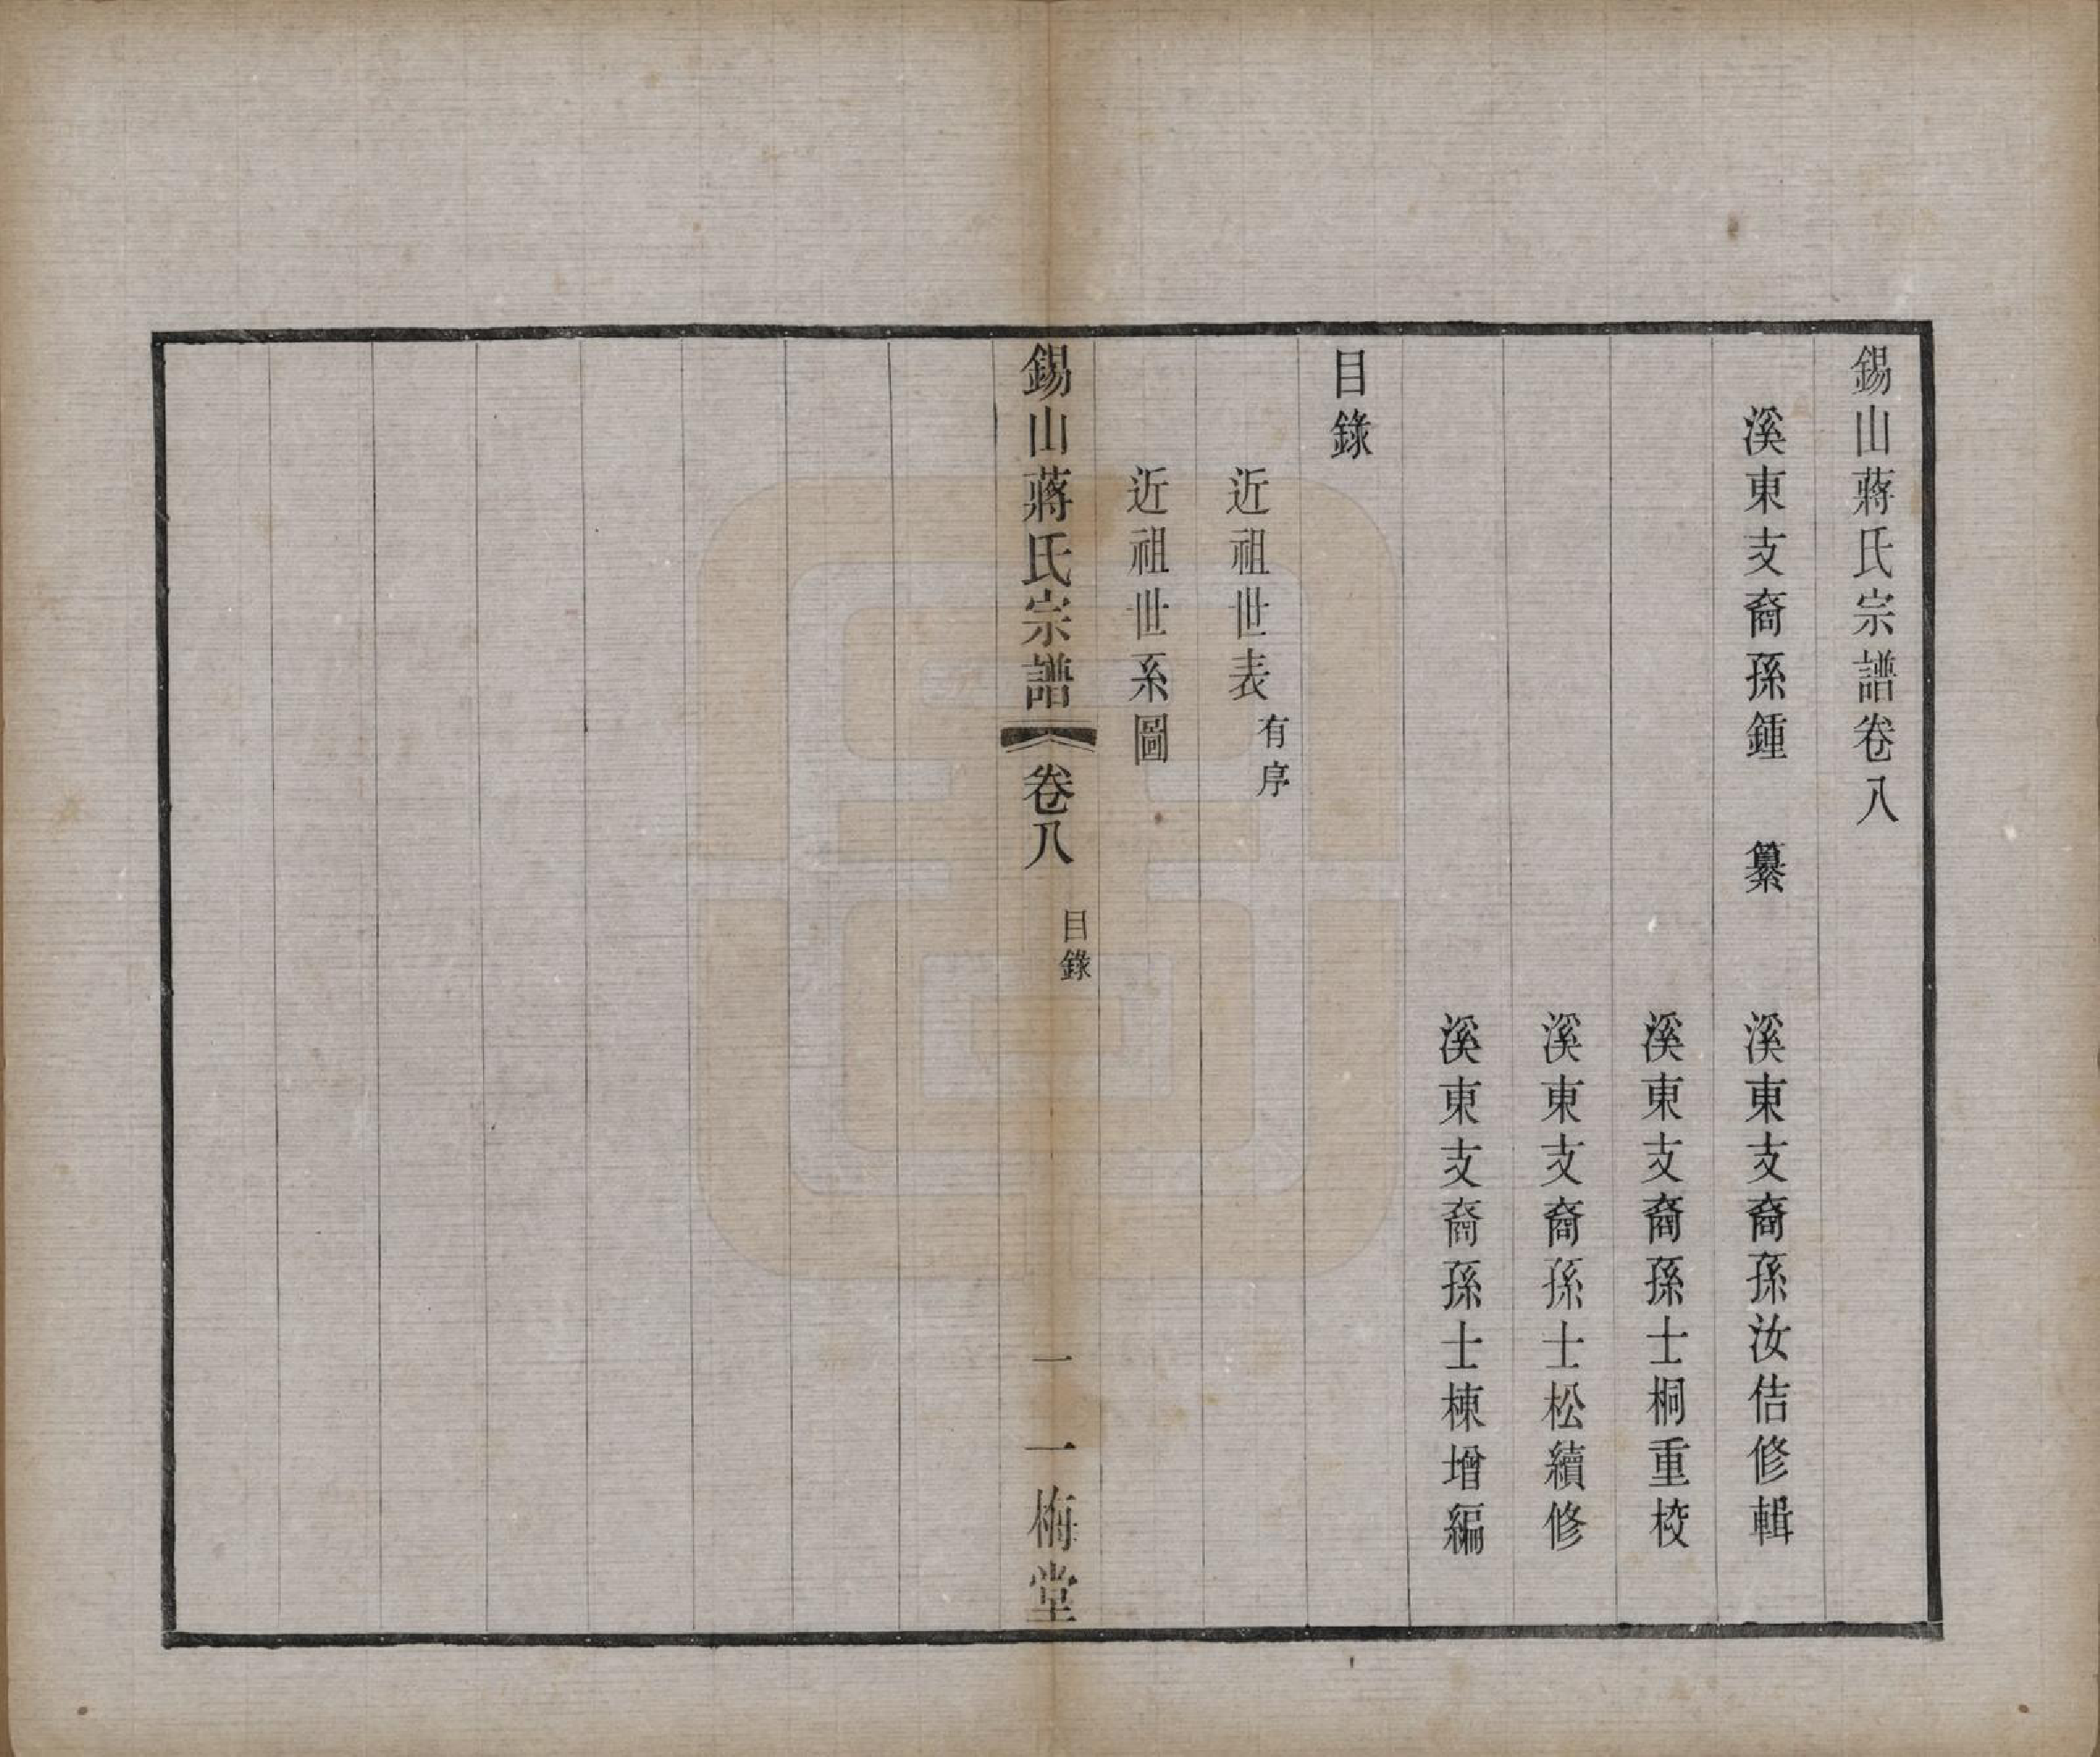 錫山蔣氏宗譜卷八
溪東支裔孫鍾　纂　溪東支裔孫汝佶修輯
溪東支裔孫士桐重校
溪東支裔孫士松續修
溪東支裔孫士棟增編
目錄
近祖世表有序
近祖世系圖
錫山蔣氏宗譜　卷八　目錄　一　一梅堂